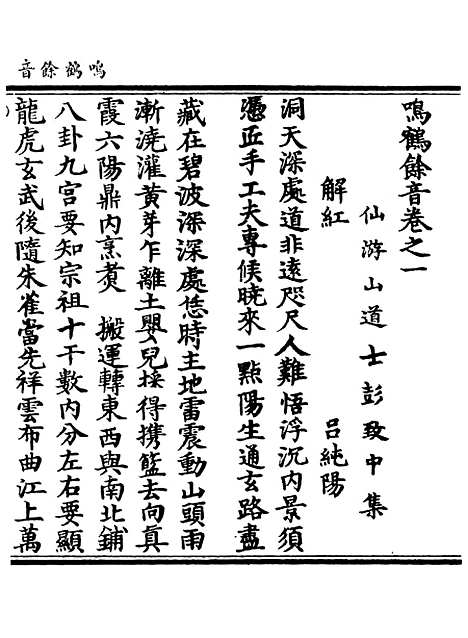 鳴鶴餘音
鳴鶴餘音卷之一
仙游山道士彭致中集
解紅 呂純陽
洞天深處道非遠咫尺人難悟浮沉内景須
憑匠手工夫專候曉來一點陽生通玄路盡
藏在碧波深深處恁時主地雷震動山頭雨
漸澆灌黃芽乍離土嬰兒採得携籃去向真
霞六陽鼎内烹煑 搬運轉東西與南北鋪
八卦九宮要知宗祖十干數内分左右要顯
龍虎玄武後隨朱雀當先祥雲布曲江上萬